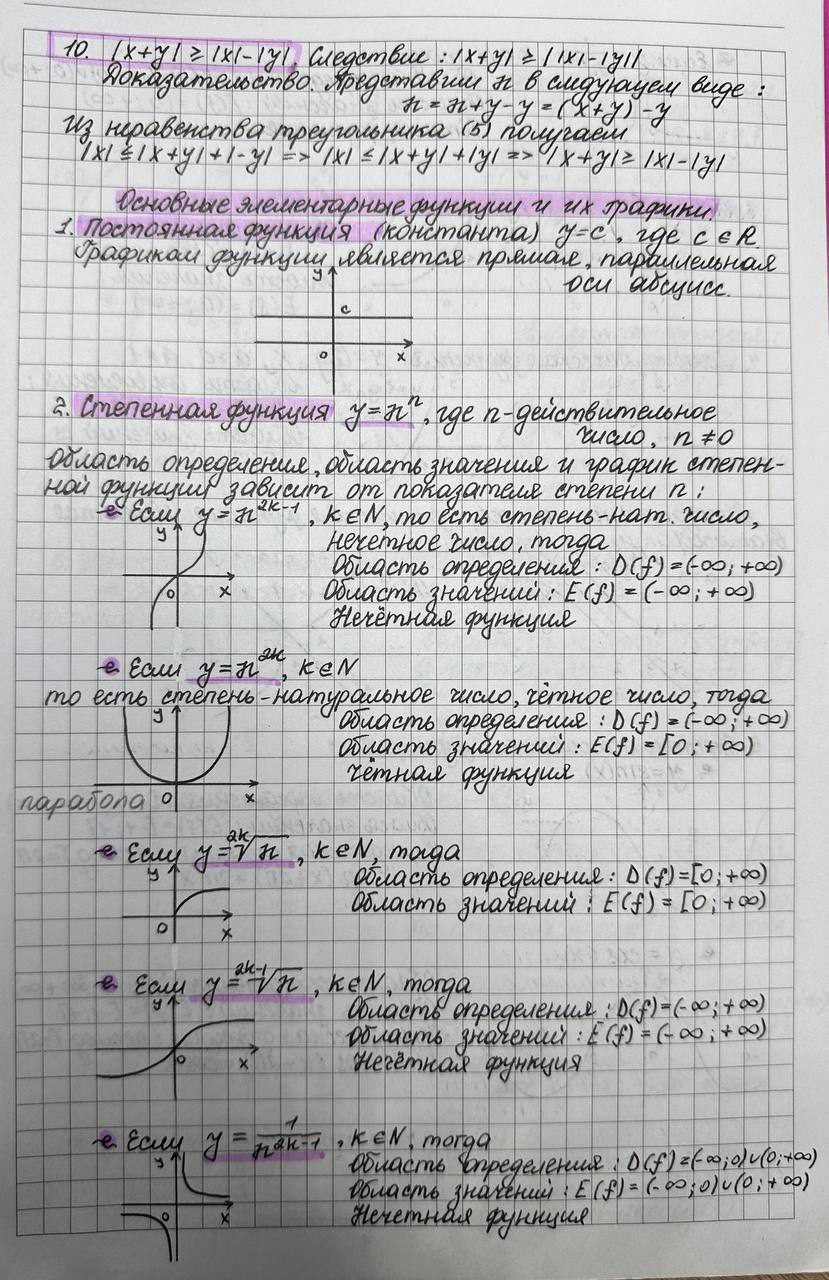 10. |x+y| ≥ |x|-|y|. Следствие: |x+y| ≥ ||x|-|y||
Доказательство. Представим x в следующем виде:
x = x+y-y = (x+y)-y
Из неравенства треугольника (5) получаем
|x| ≤ |x+y|+|-y| => |x| ≤ |x+y|+|y| => |x+y| ≥ |x|-|y|
Основные элементарные функции и их графики.
1. Постоянная функция (константа) y=c, где c ∈ R.
Графиком функции является прямая, параллельная
оси абсцисс.
y
c
0 x
2. Степенная функция y=xⁿ, где n-действительное
число, n ≠ 0
Область определения, область значения и график степен-
ной функции зависит от показателя степени n:
Если y=x^{2k-1}, k∈N, то есть степень-нат. число,
нечетное число, тогда
y
Область определения: D(f)=(-∞; +∞)
0 x
Область значений: E(f)=(-∞; +∞)
Нечётная функция
Если y=x^{2k}, k∈N
то есть степень-натуральное число, чётное число, тогда
y
Область определения: D(f)=(-∞; +∞)
Область значений: E(f)=[0; +∞)
чётная функция
парабола 0 x
Если y=^{2k}√x, k∈N, тогда
y
Область определения: D(f)=[0; +∞)
Область значений: E(f)=[0; +∞)
0 x
Если y=^{2k-1}√x, k∈N, тогда
y
Область определения: D(f)=(-∞; +∞)
Область значений: E(f)=(-∞; +∞)
0 x
Нечётная функция
Если y = 1/x^{2k-1}, k∈N, тогда
y
Область определения: D(f)=(-∞; 0)∪(0; +∞)
Область значений: E(f)=(-∞; 0)∪(0; +∞)
0 x
Нечетная функция